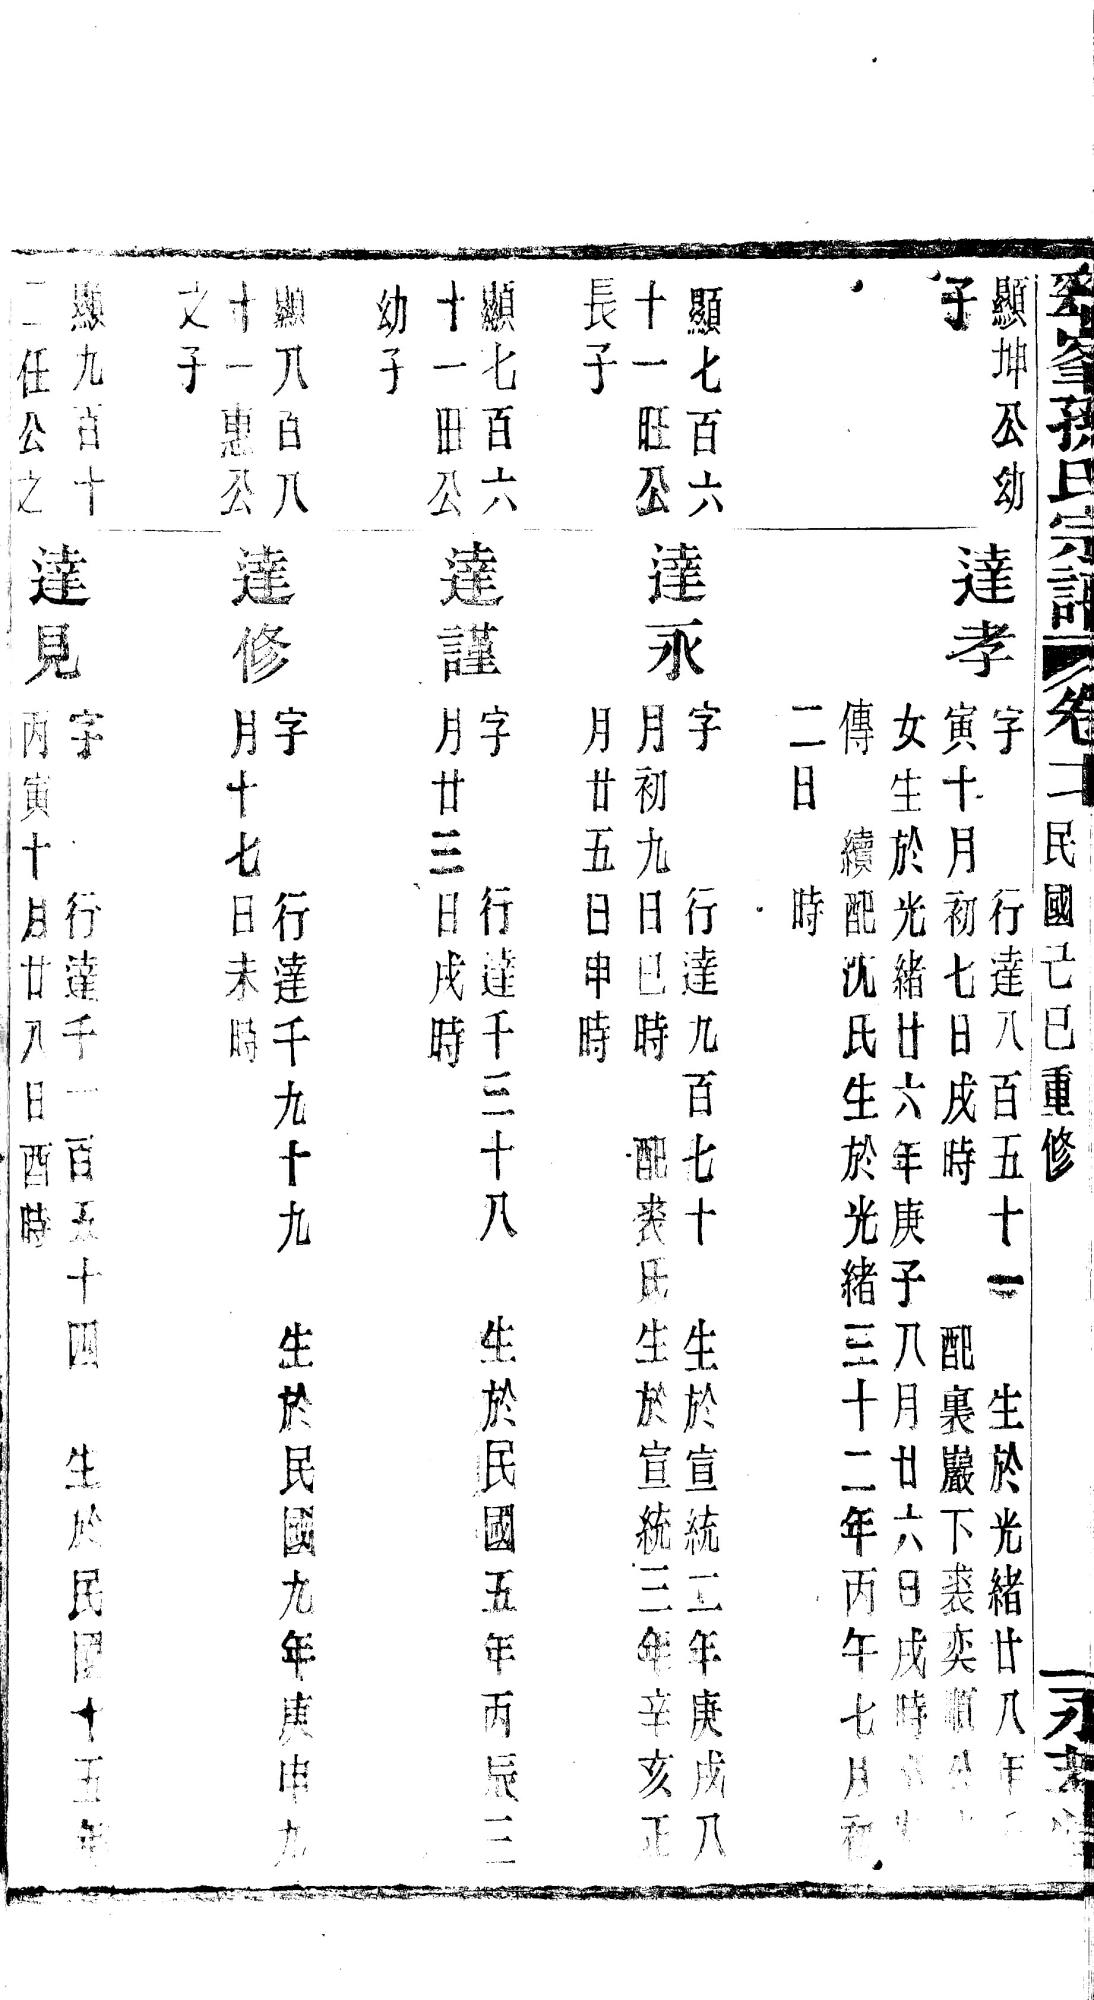 孫氏宗譜
卷十
民國己巳重修
一
永
顯坤公幼
子
達孝
字　行達八百五十一　生於光緒廿八年
寅十月初七日戌時　配裏巖下裘奕順公
女生於光緒廿六年庚子八月廿六日戌時
傳　續配沈氏生於光緒三十二年丙午七月初
二日　時
顯七百六
十一旺公
長子
達永
字　行達九百七十　生於宣統二年庚戌八
月初九日巳時　配裘氏生於宣統三年辛亥正
月廿五日申時
顯七百六
十一旺公
幼子
達謹
字　行達千三十八　生於民國五年丙辰三
月廿三日戌時
顯八百八
十一惠公
之子
達修
字　行達千九十九　生於民國九年庚申九
月十七日未時
顯九百十
二任公之
達見
字　行達千一百五十四　生於民國十五年
丙寅十月廿八日酉時